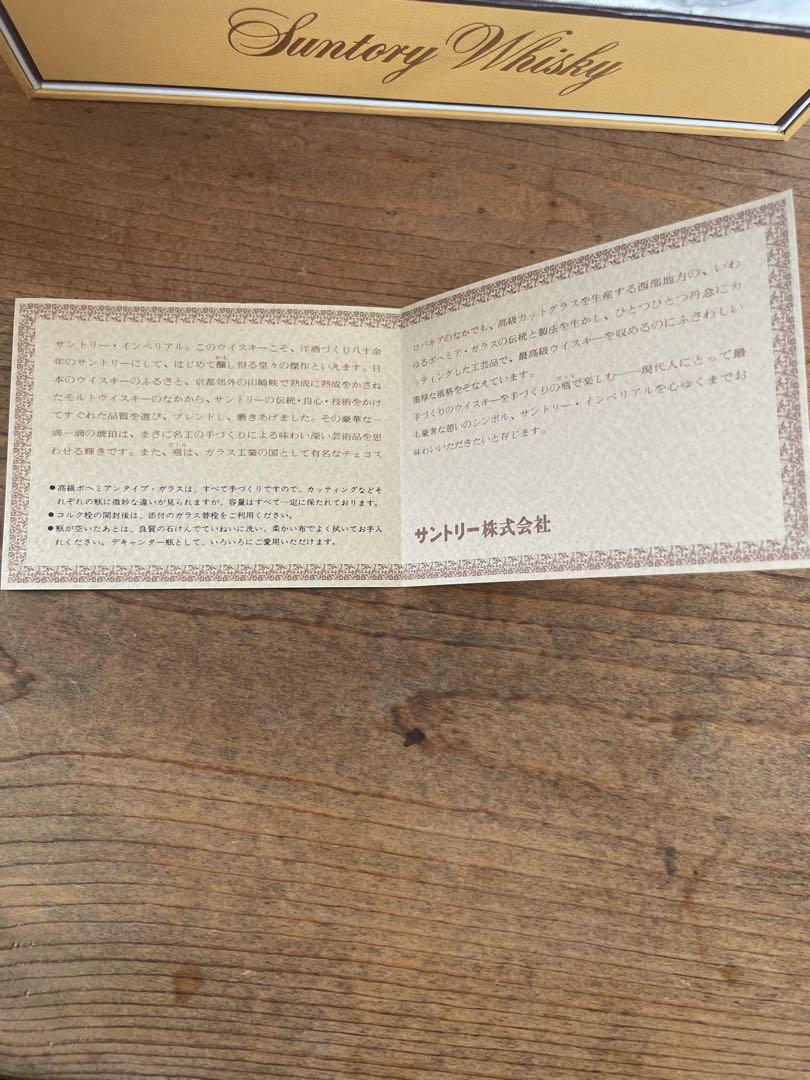 Suntory Whisky
サントリー・インペリアル。このウイスキーこそ、洋酒づくり八十余
年のサントリーにして、はじめて醸し得る堂々の傑作といえます。日
本のウイスキーのふるさと、京都郊外の山崎峡で熟成に熟成をかさね
たモルトウイスキーのなかから、サントリーの伝統・良心・技術をかけ
てすぐれた品質を選び、ブレンドし、磨きあげました。その豪華な一
滴一滴の琥珀は、まさに名工の手づくりによる味わい深い芸術品を思
わせる輝きです。また、瓶は、ガラス工業の国として有名なチェコス
●高級ボヘミアンタイプ・ガラスは、すべて手づくりですので、カッティングなどそ
れぞれの瓶に微妙な違いが見られますが、容量はすべて一定に保たれております。
●コルク栓の開封後は、添付のガラス替栓をご利用ください。
●瓶が空いたあとは、良質の石けんでていねいに洗い、柔かい布でよく拭いてお手入
れください。デキャンター瓶として、いろいろにご愛用いただけます。
ロバキアのなかでも、高級カットグラスを生産する西部地方の、いわ
ゆるボヘミア・ガラスの伝統と製法を生かし、ひとつひとつ丹念にカ
ッティングした工芸品で、最高級ウイスキーを収めるのにふさわしい
重厚な風格をそなえています。
手づくりのウイスキーを手づくりの瓶で楽しむ——現代人にとって最
も豪奢な憩いのシンボル、サントリー・インペリアルを心ゆくまでお
味わいいただきたいと存じます。
サントリー株式会社